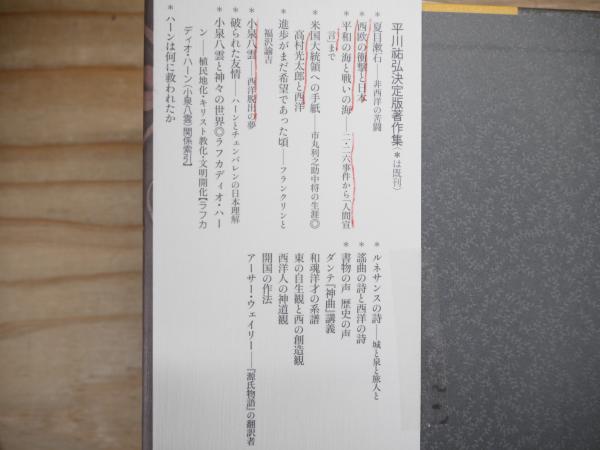 平川祐弘決定版著作集（＊は既刊）
＊夏目漱石――非西洋の苦闘
＊西欧の衝撃と日本
＊平和の海と戦いの海――二・二六事件から「人間宣
言」まで
＊米国大統領への手紙――市丸利之助中将の生涯◎
高村光太郎と西洋
＊進歩がまだ希望であった頃――フランクリンと
福沢諭吉
＊小泉八雲――西洋脱出の夢
＊破られた友情――ハーンとチェンバレンの日本理解
＊小泉八雲と神々の世界◎ラフカディオ・ハー
ン――植民地化・キリスト教化・文明開化【ラフカ
ディオ・ハーン（小泉八雲）関係索引】
＊ハーンは何に救われたか
＊ルネサンスの詩――城と泉と旅人と
＊謡曲の詩と西洋の詩
＊書物の声 歴史の声
ダンテ『神曲』講義
和魂洋才の系譜
東の自生観と西の創造観
西洋人の神道観
開国の作法
アーサー・ウェイリー――『源氏物語』の翻訳者